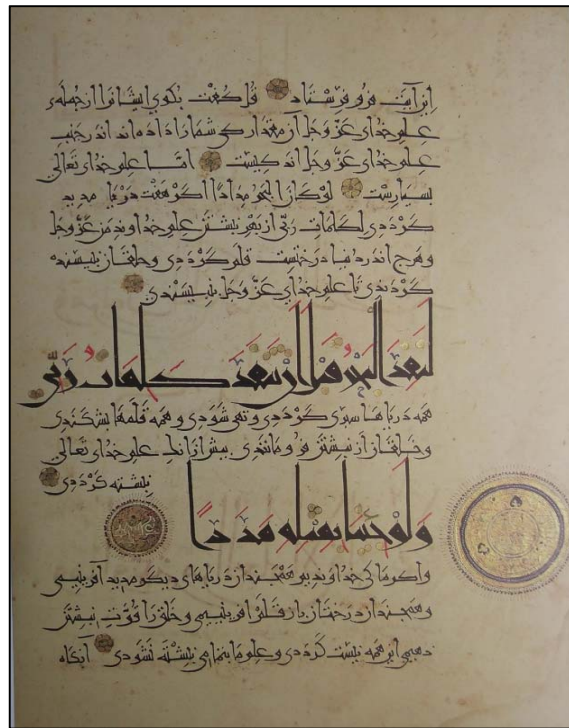 این آیت فرو فرستاد قل کفت بکوی ایشانرا از جملهٔ
علم خدای عزّ وجلّ آن مقدار کی شما را داده اند اندر جنب
علم خدای عزّ وجلّ اندکیست امّا علم خدای تعالی
بسیارست لو کان البحر مدادا اکر هفت دریا مدید
کرددی لکلمات ربّی از بهر نبشتن علم خداوند من عزّ وجلّ
و هرج اندر دنیا درختست قلم کرددی و خلقان نبیسنده
کردندی تا علم خدای عزّ وجلّ بنبیسندی
لَنَفِدَ الْبَحْرُ قَبْلَ اَنْ تَنْفَدَ کَلِمَاتُ رَبِّی
همه دریاها سپری کرددی و تهی شودی و همه قلمها بشکندی
و خلقان از نبشتن فرو مانندی بیش از انک علم خدای تعالی
نبشته کرددی
وَلَوْ جِئْنَا بِمِثْلِهِ مَدَدًا
و اکر ما کی خداوندیم همچندان دریاهای دیکر مدید آفرینیمی
و همچندان درختان باز قلم آفرینیمی و خلق را قوّت نبشتن
دهیمی این همه نیست کرددی و علم ما بتمامی نبشته نشودی آنکاه